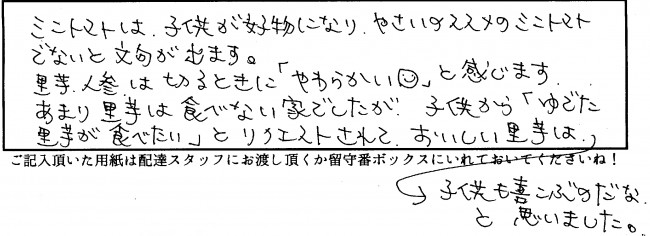 ミニトマトは、子供が好物になり、やさいのススメのミニトマト
でないと文句が出ます。
里芋、人参、は切るときに「やわらかい☺」と感じます。
あまり里芋は食べない家でしたが、子供から「ゆでた
里芋が食べたい」とリクエストされて、おいしい里芋は、
ご記入頂いた用紙は配達スタッフにお渡し頂くか留守番ボックスにいれておいてくださいね！
→子供も喜こぶのだな、
と思いました。